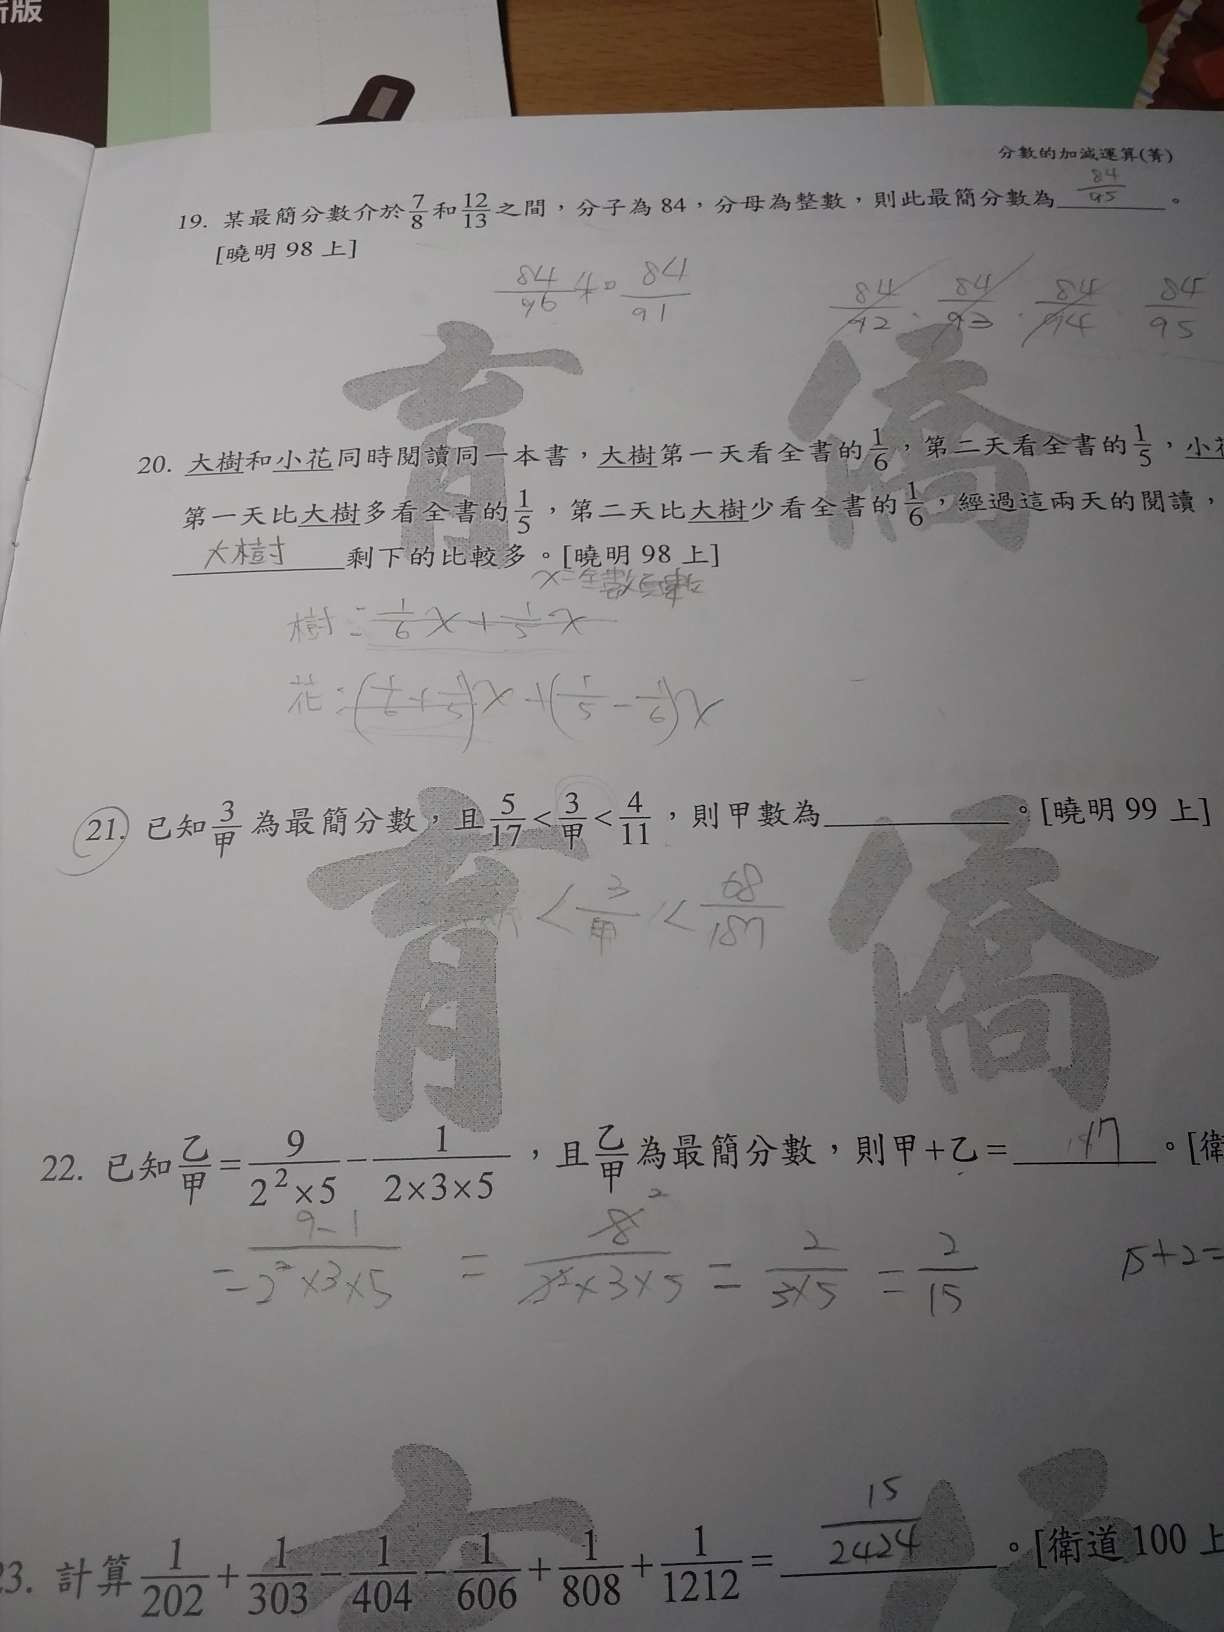 新版
分數的加減運算(菁)
19. 某最簡分數介於7/8和12/13之間,分子為 84,分母為整數,則此最簡分數為 84/95 。
[曉明 98 上]
84/96 和 84/91
84/92 . 84/93 . 84/94 84/95
20. 大樹和小花同時閱讀同一本書,大樹第一天看全書的1/6,第二天看全書的1/5,小花
第一天比大樹多看全書的1/5,第二天比大樹少看全書的1/6,經過這兩天的閱讀,
大樹 剩下的比較多。[曉明 98 上]
樹:
花:
21. 已知3/甲為最簡分數,且5/17<3/甲<4/11,則甲數為 。[曉明 99 上]
< 3/甲 <
22. 已知乙/甲=9/(2²×5)-1/(2×3×5),且乙/甲為最簡分數,則甲+乙= 17 。[衛
= (9-1)/(2²×3×5) = 8/(2²×3×5) = 2/(3×5) = 2/15
2
15+2=
23. 計算1/202+1/303-1/404-1/606+1/808+1/1212= 15/2424 。[衛道 100 上
育僑
育僑
育僑